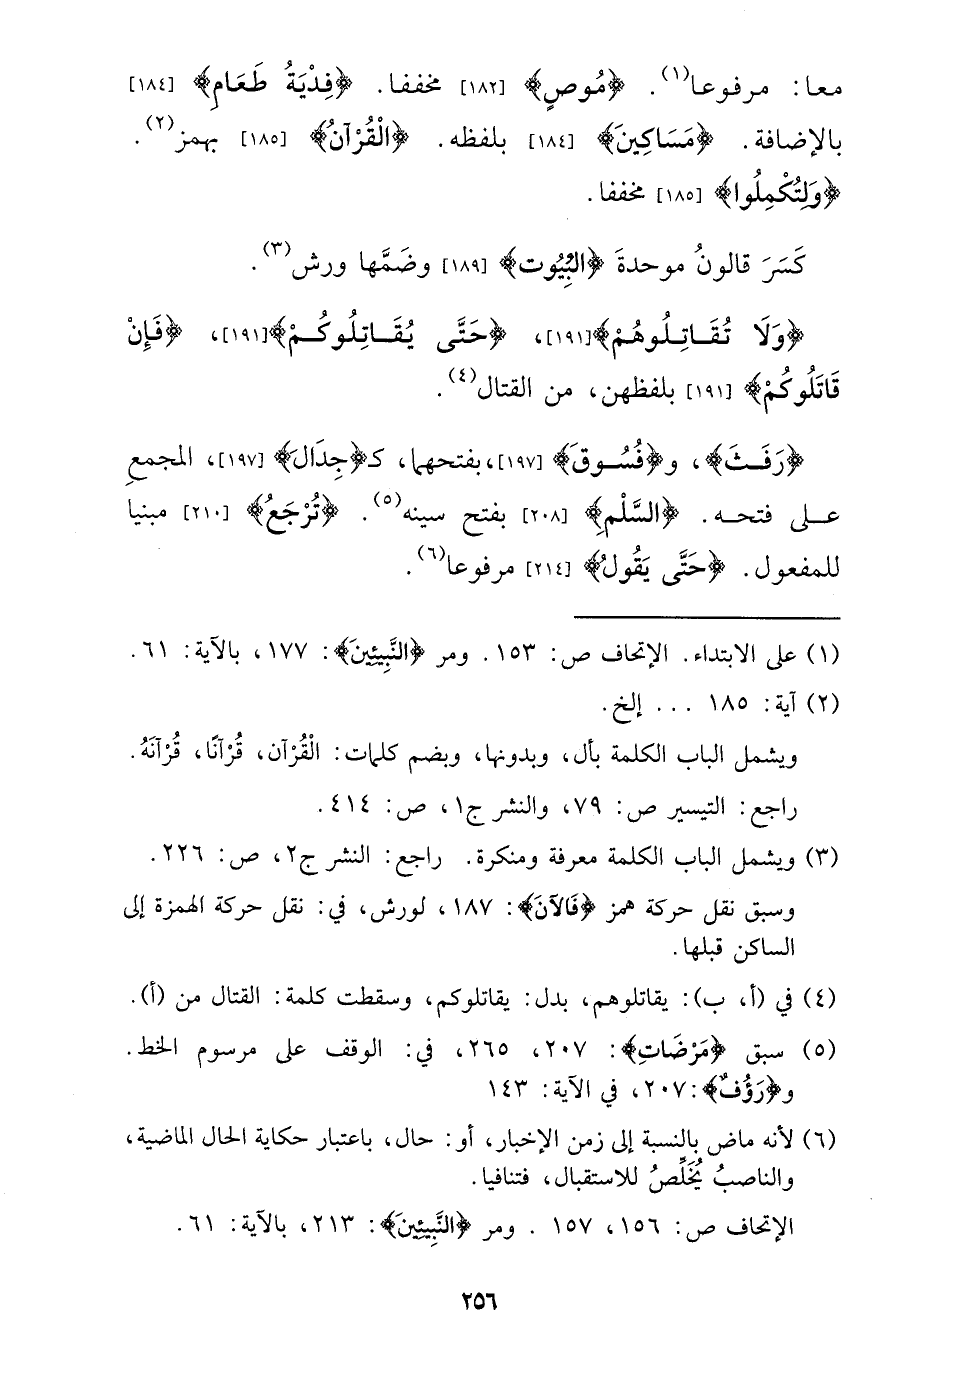 معا: مرفوعا(١). ﴿مُوصٍ﴾ [١٨٢] مخففا. ﴿فِدْيَةُ طَعَامِ﴾ [١٨٤]
بالإضافة. ﴿مَسَاكِينَ﴾ [١٨٤] بلفظه. ﴿الْقُرْآنُ﴾ [١٨٥] بهمز(٢).
﴿وَلِتُكْمِلُوا﴾ [١٨٥] مخففا.
كَسَرَ قالونُ موحدةَ ﴿البُِيُوت﴾ [١٨٩] وضَمَّها ورش(٣).
﴿وَلَا تُقَاتِلُوهُمْ﴾[١٩١]، ﴿حَتَّى يُقَاتِلُوكُمْ﴾[١٩١]، ﴿فَإِنْ
قَاتَلُوكُمْ﴾ [١٩١] بلفظهن، من القتال(٤).
﴿رَفَثَ﴾، و﴿فُسُوقَ﴾ [١٩٧]،بفتحهما، كـ﴿جِدَالَ﴾ [١٩٧]، المجمع
على فتحه. ﴿السَّلْمِ﴾ [٢٠٨] بفتح سينه(٥). ﴿تُرْجَعُ﴾ [٢١٠] مبنيا
للمفعول. ﴿حَتَّى يَقُولُ﴾ [٢١٤] مرفوعا(٦).
(١) على الابتداء. الإتحاف ص: ١٥٣. ومر ﴿النَّبِيئِينَ﴾: ١٧٧، بالآية: ٦١.
(٢) آية: ١٨٥ ... إلخ.
ويشمل الباب الكلمة بأل، وبدونها، وبضم كلمات: الْقُرْآن، قُرْآنًا، قُرْآنَهُ.
راجع: التيسير ص: ٧٩، والنشر ج١، ص: ٤١٤.
(٣) ويشمل الباب الكلمة معرفة ومنكرة. راجع: النشر ج٢، ص: ٢٢٦.
وسبق نقل حركة همز ﴿فَالآنَ﴾: ١٨٧، لورش، في: نقل حركة الهمزة إلى
الساكن قبلها.
(٤) في (أ، ب): يقاتلوهم، بدل: يقاتلوكم، وسقطت كلمة: القتال من (أ).
(٥) سبق ﴿مَرْضَاتِ﴾: ٢٠٧، ٢٦٥، في: الوقف على مرسوم الخط.
و﴿رَؤُفٌ﴾:٢٠٧، في الآية: ١٤٣
(٦) لأنه ماض بالنسبة إلى زمن الإخبار، أو: حال، باعتبار حكاية الحال الماضية،
والناصبُ يُخَلِّصُ للاستقبال، فتنافيا.
الإتحاف ص: ١٥٦، ١٥٧ . ومر ﴿النَّبِيئِينَ﴾: ٢١٣، بالآية: ٦١.
٢٥٦